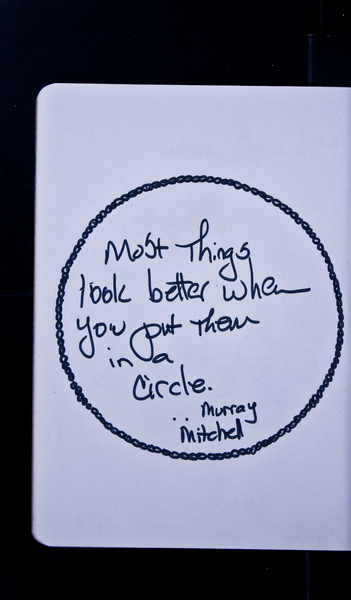 Most Things
look better when
you put them
in a
Circle.
.. Murray
Mitchell